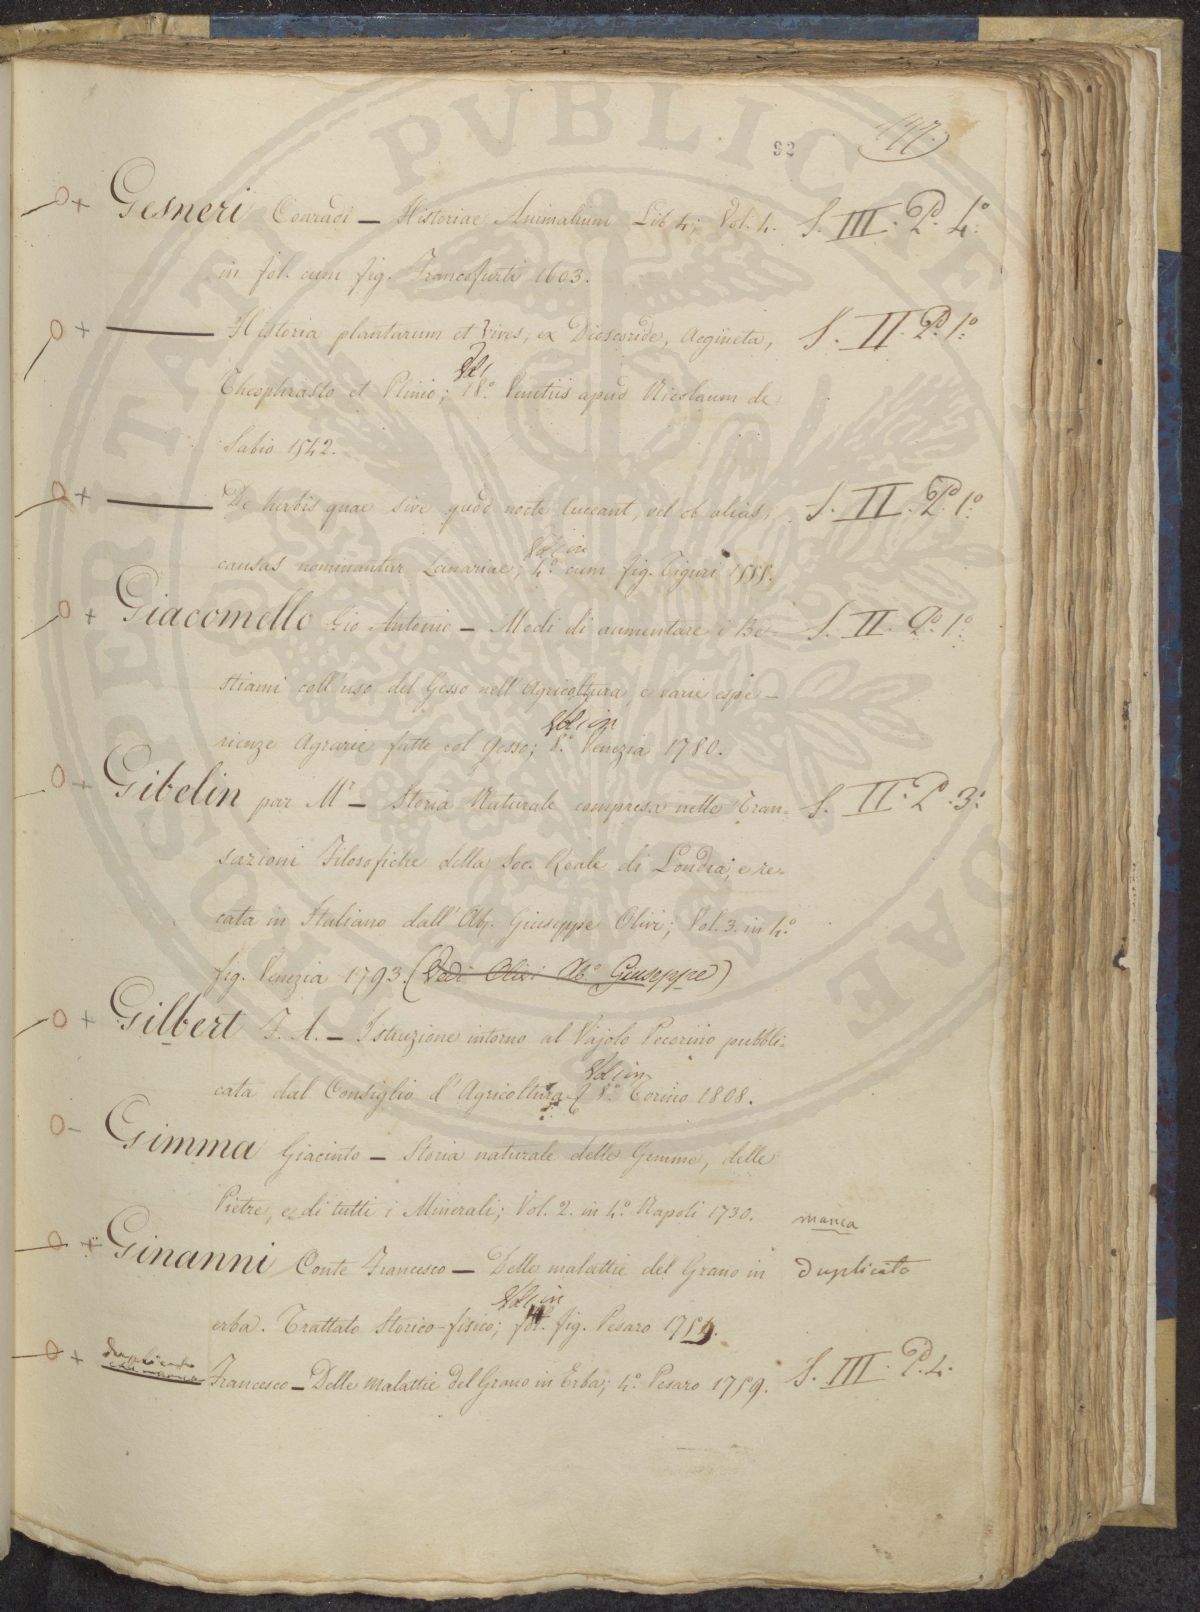 PROSPERITATI PVBLICAE AVGENDAE
92
Gesneri Conradi — Historiae Animalium Lib 4; Vol. 4. S. III. P. 4.º
in fol. cum fig. Francofurti 1603.
Historia plantarum et vires, ex Dioscoride, Aegineta, S. II. P. 1.º
Vol 1
Theophrasto et Plinio; 8.º Venetiis apud Nicolaum de
Sabio 1542.
De herbis quae sive quod nocte luceant, vel ob alias S. II. P. 1.º
Vol 1 in
causas nominantur Lunariae; 4.º cum fig. Tiguri 1555.
Giacomello Gio Antonio — Modi di aumentare i Be- S. II. P. 1.º
stiami coll'uso del Gesso nell'Agricoltura, e varie espe-
Vol 1 in
rienze Agrarie fatte col Gesso; 8.º Venezia 1780.
Gibelin par Mr — Storia Naturale compresa nelle Tran- S. II. P. 3.º
sazioni Filosofiche della Soc. Reale di Londra; e re-
cata in Italiano dall'Ab. Giuseppe Olivi; Vol. 3. in 4.º
fig. Venezia 1793. (Vedi Olivi Ab.e Giuseppe)
Gilbert F. A. — Istruzione intorno al Vajolo Pecorino pubbli-
Vol 1 in
cata dal Consiglio d'Agricoltura; 8.º Torino 1808.
Gimma Giacinto — Storia naturale delle Gemme, delle
Pietre, e di tutti i Minerali; Vol. 2. in 4.º Napoli 1730. manca
Ginanni Conte Francesco — Delle malattie del Grano in duplicato
Vol 1 in
erba. Trattato Storico-fisico; fol. fig. Pesaro 1759.
Francesco — Delle malattie del Grano in Erba; 4.º Pesaro 1759. S. III. P. 4.